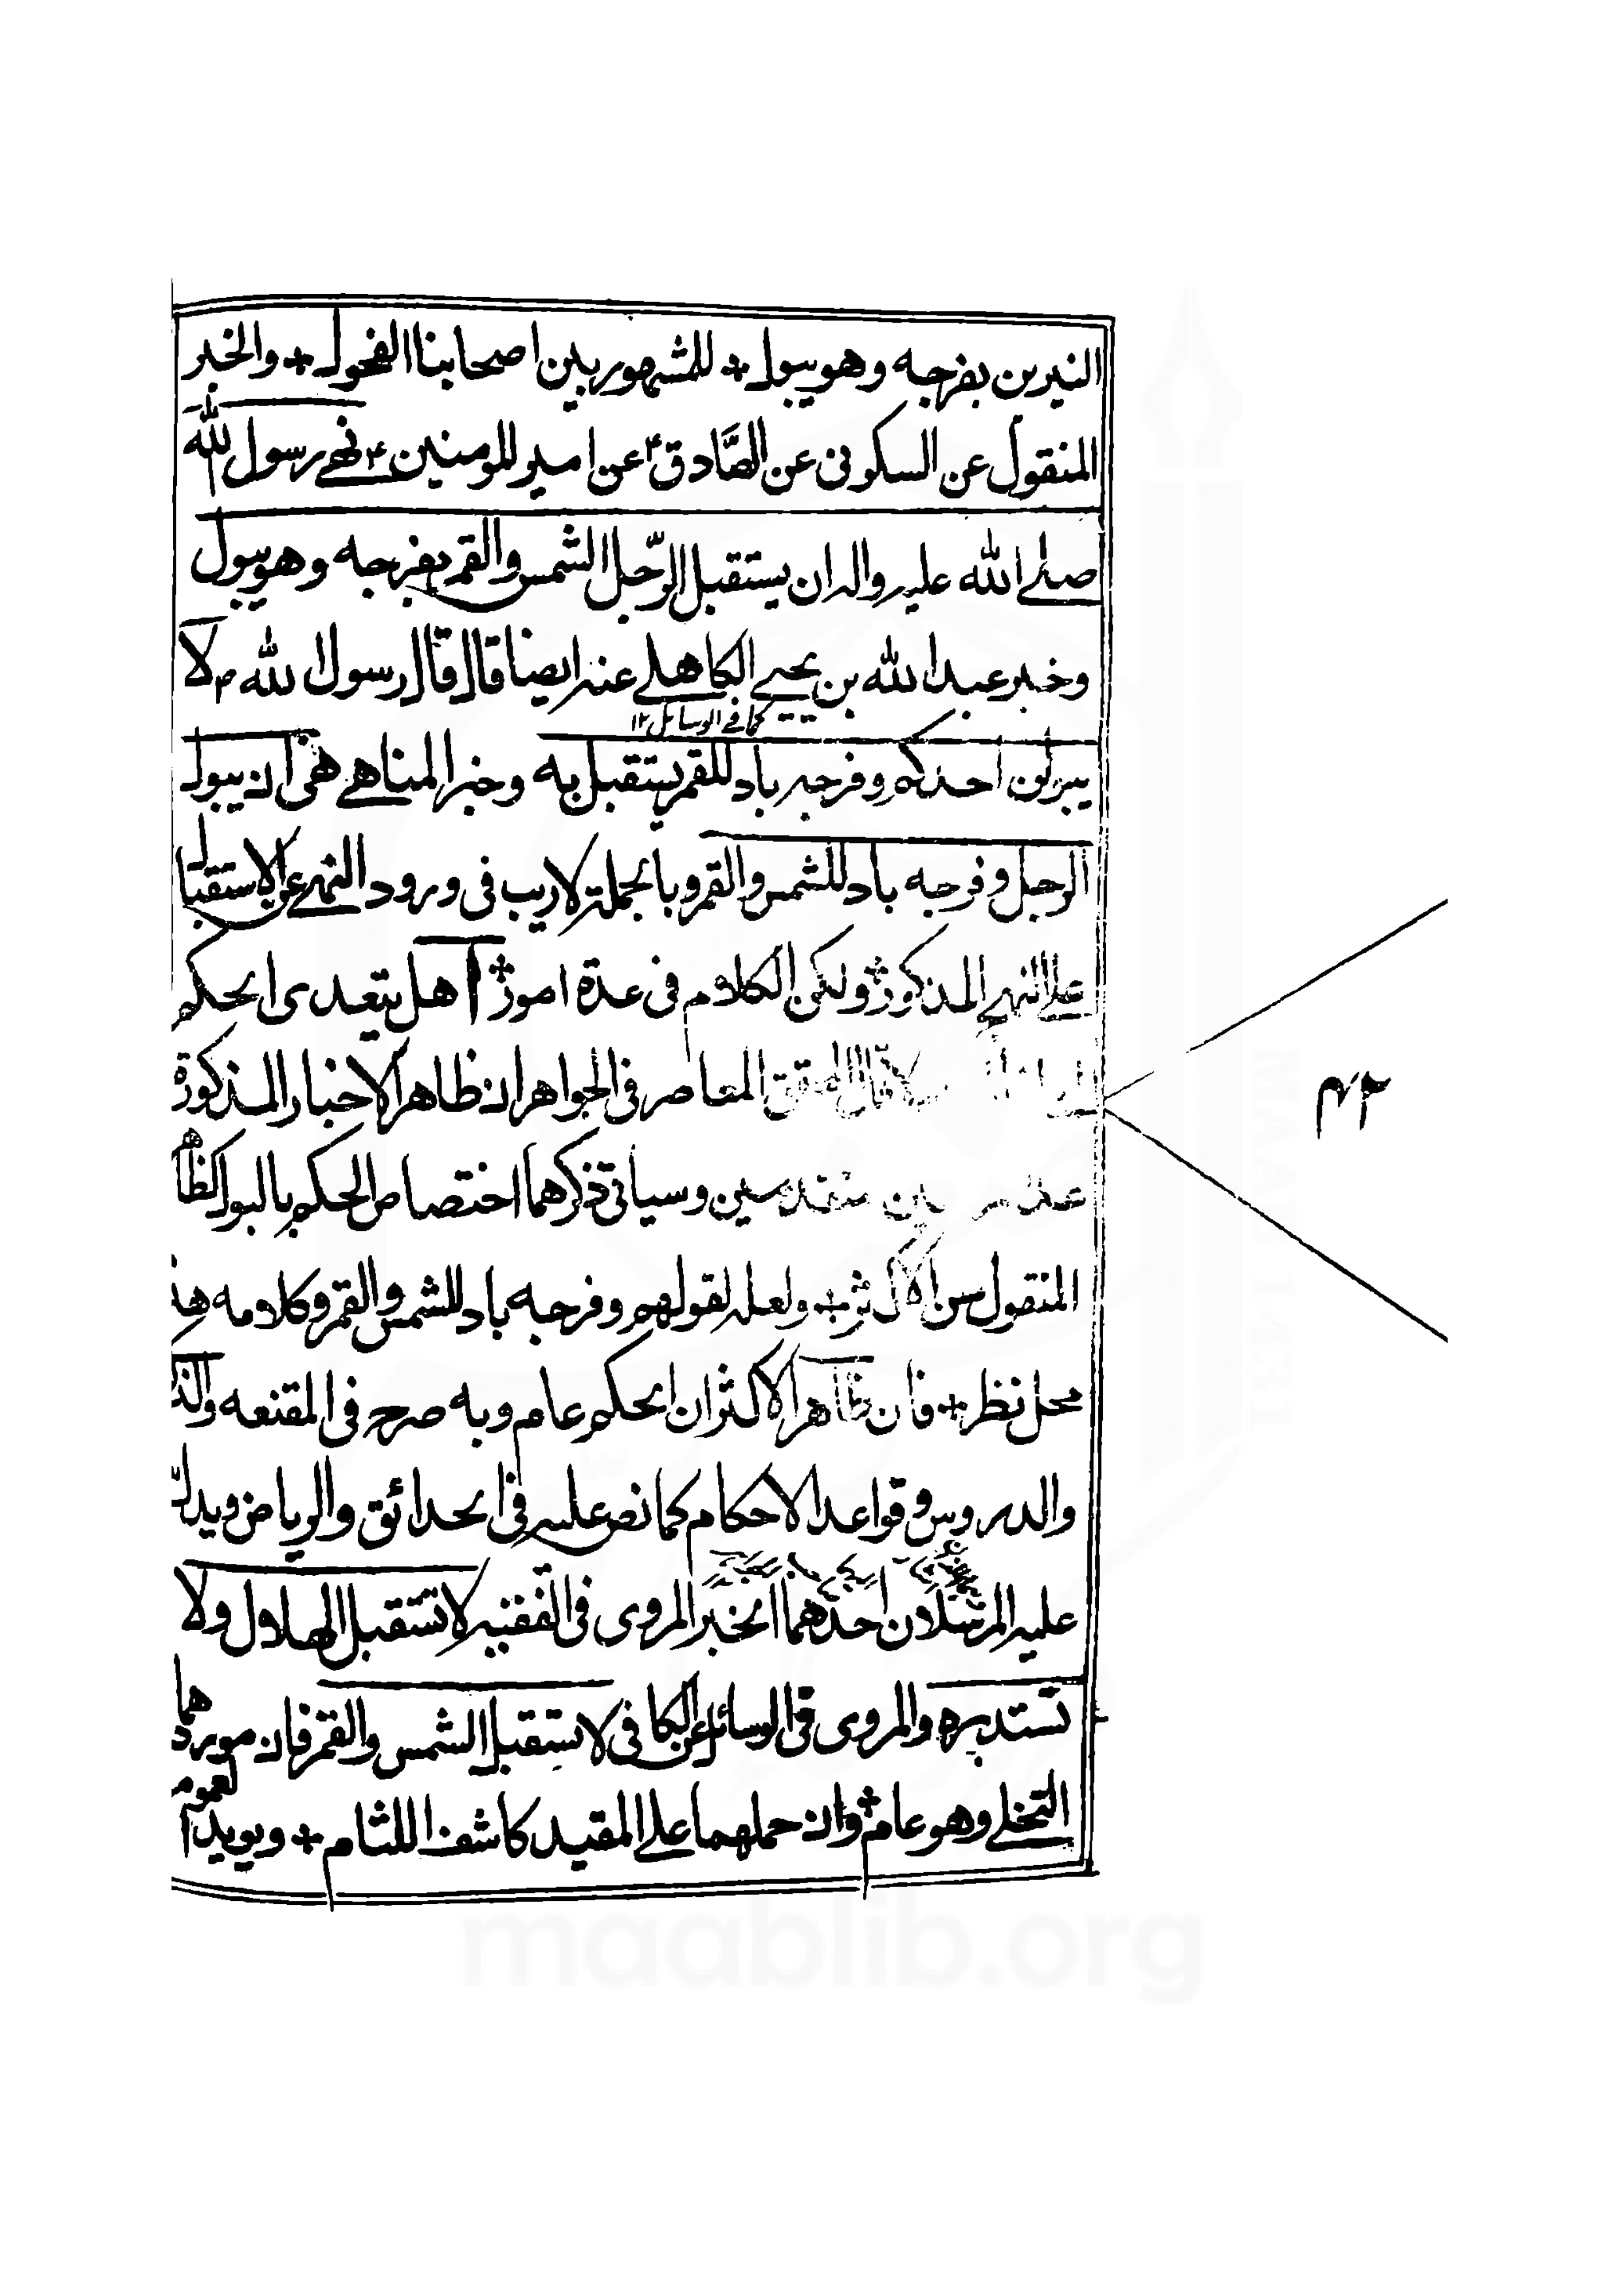 النيرين بفرجه وهو يبول + للمشهور بين اصحابنا الفحول + والخبر
المنقول عن السكونى عن الصَّادق ع عن امير المومنين ع نهى رسول الله
صلے الله عليه واله ان يستقبل الرّجل الشمس والقمر بفرجه وهو يبول
وخبر عبد الله بن يحيے الكاهلے عنه ايضا قال قال رسول الله ص لا
كما فے الوسائل ١٢
يبولن احدكم وفرجه باد للقمر يستقبل به وخبر المناهے نهى ان يبول
الرجل وفرجه باد للشمس والقمر وبالجملة لاريب فى ورود النهے عن الاستقبال
علے النهج المذكور + ولكن الكلام فى عدة امور + آ هل يتعدى الحكم
المعاصر فى الجواهر ان ظاهر الاخبار المذكورة
وسياتى ذكرهما اختصاص الحكم بالبول كظاهر
المنقول من الاكثر + ولعله لقولهم وفرجه باد للشمس والقمر وكلامه هذا
محل نظر + فان ظاهر الاكثر ان الحكم عام وبه صرح فى المقنعه
والدروس وقواعد الاحكام كما نص عليه فى الحدائق والرياض ويدل
عليه المرسلان احدهما الخبر المروى فى الفقيه لا تستقبل الهلال ولا
تستدبره والمروى فى الوسائل عن الكافى لا تستقبل الشمس والقمر فان موردهما
التخلے وهو عام + وان حملهما علے المقيد كاشف اللثام + ويويد العموم
٤٢
maablib.org
MAAB 1431